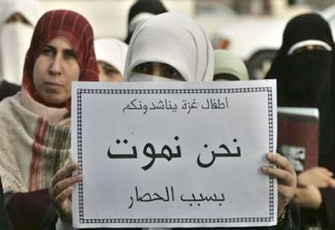 أطفال غزة يناشدونكم
نحن نموت
بسبب الحصار